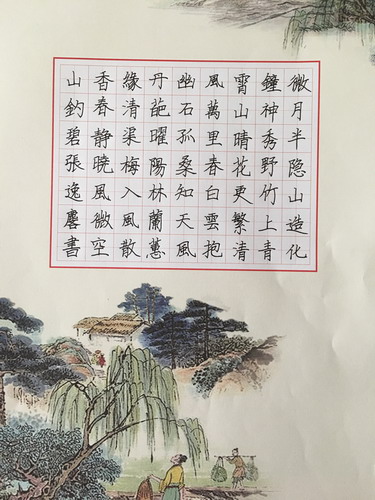 微月半隐山造化
鐘神秀野竹上青
霄山晴花更繁清
風萬里春白雲抱
幽石孤桑知天風
丹葩曜陽林蘭蕙
緣清渠梅入風散
香春静曉風微空
山釣碧張逸麐書